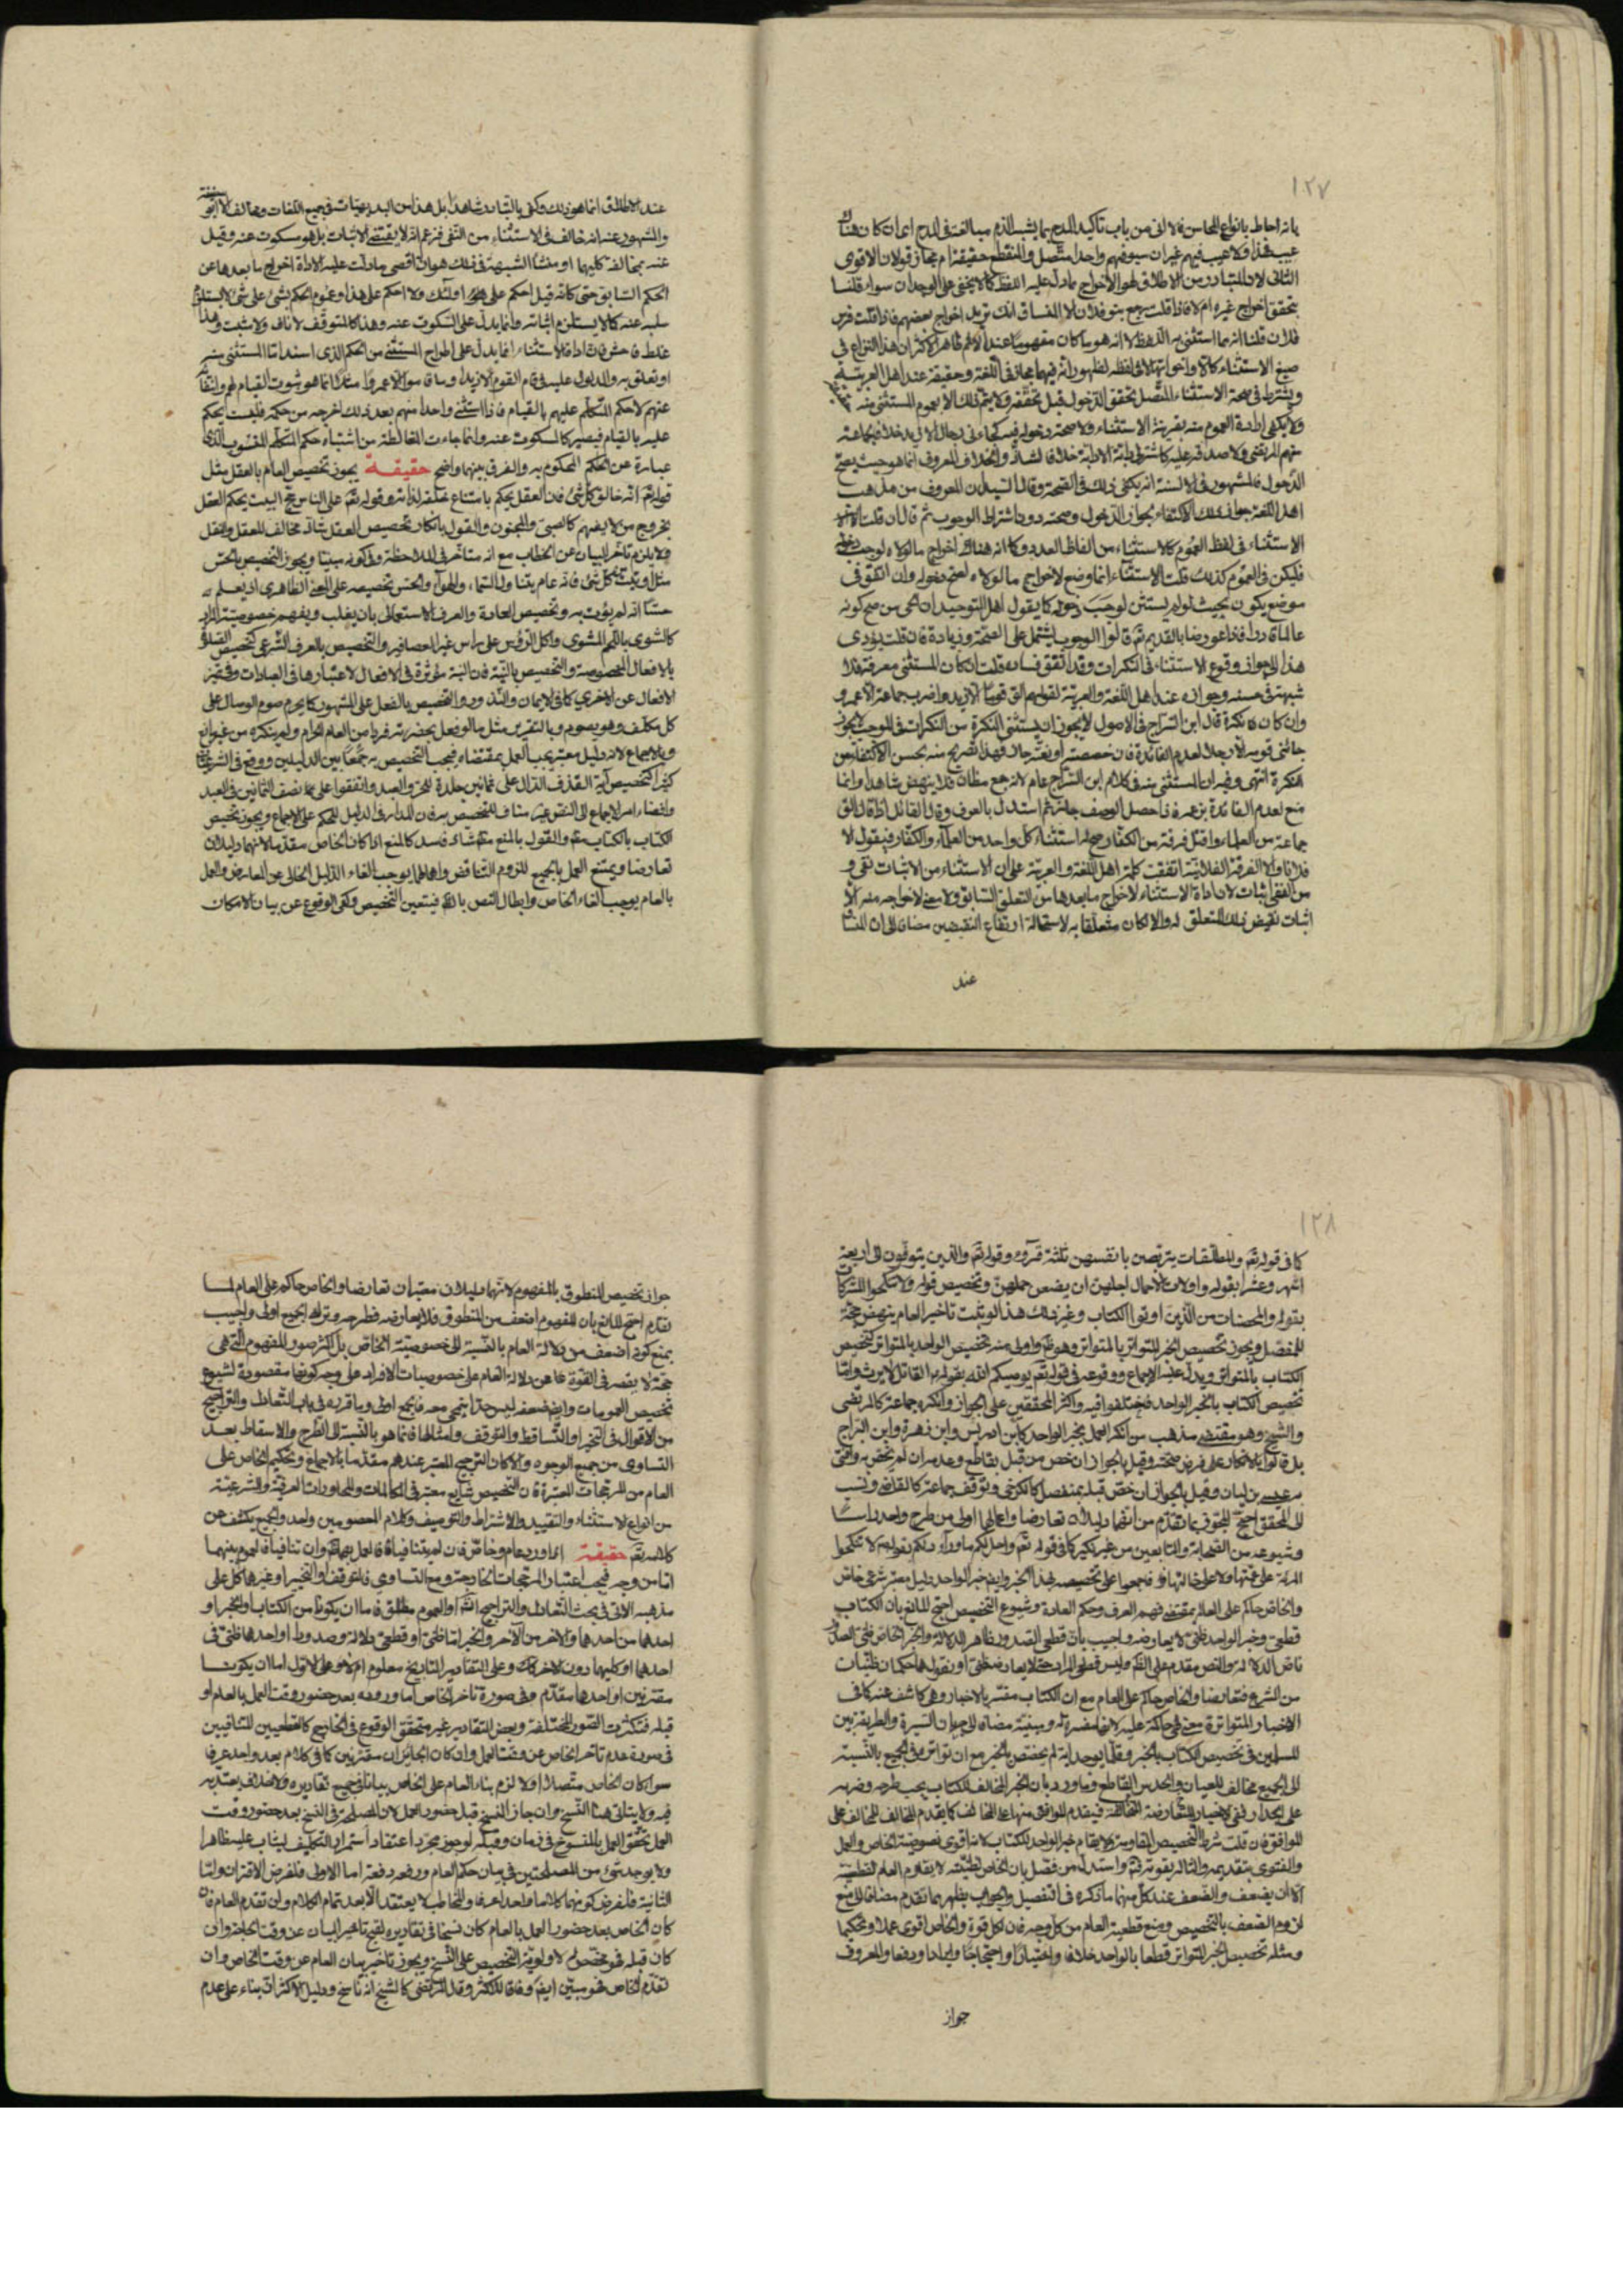 ١٢٧
بانه احاط بانواع المحاسن فالاتى من باب تاكيد المدح بما يشبه الذم مبالغة فى المدح اى ان كان هناك
عيب فهذا ولا عيب فيهم غير ان سيوفهم واحد متصل والمنقطع حقيقة ام مجاز قولان الاقوى
الثانى لان المتبادر من الاطلاق هو الاخراج مادل عليه اللفظ كما لا يخفى على الوجدان سواء قلنا
بتحقق اخراج غيره ام لا فاذا قلت رجع بنو فلان الا انساق انك تريد اخراج بعضهم فاذا قلت فرس
فلان قلنا انه مما استثنى به اللفظ لا انه هو ما كان مفهوما عند الاكثر ان هذا النزاع فى
صيغ الاستثناء كالا واخواتها لا فى لفظه لظهور انه فيهما مجاز فى اللغة وحقيقة عند اهل العربية
ويشترط فى صحة الاستثناء المتصل تحقق الدخول قبل تحققه ولا يتم ذلك الا بعموم المستثنى منه
ولا يكفى ارادة العموم منه بقرينة الاستثناء ولا صحة دخوله فيه كجاءنى رجال الا زيد خلافا لجماعة
منهم المرتضى ولا صدقه عليه كاشترى دابة الا دابة خلافا لشاذ والخلاف المعروف انما هو حيث يصح
الدخول فالمشهور فى الالسنة انه يكفى ذلك فى الصحة وقال السيد ان المعروف من مذهب
اهل اللغة جواز ذلك الاكتفاء بجواز الدخول وصحته دون اشتراط الوجوب ثم قال ان قلت
الاستثناء فى لفظ العموم كالاستثناء من الفاظ العدد وكما انه هناك اخراج ما لولاه لوجب دخوله
فليكن فى العموم كذلك قلت الاستثناء انما وضع لاخراج ما لولاه لصح دخوله وان اتفق فى
موضع يكون بحيث لولم يستثن لوجب دخوله كما يقول اهل التوحيد ان الحى من صح كونه
عالما قادرا فاذا عورضنا بالقديم تعم قالوا الوجوب يشتمل على الصحة وزيادة فان قلت يؤدى
هذا الى جواز وقوع الاستثناء فى النكرات وقد اتفق فساده قلت ان كان المستثنى معرفة فلا
شبهة فى حسنه وجوازه عند اهل اللغة والعربية لقولهم الق قوما الا زيدا واضرب جماعة الا عمروا
وان كان نكرة قال ابن السراج فى الاصول لا يجوز ان يستثنى النكرة من النكرات فى الموجب لا يجوز
جائنى قوم الا رجلا لعدم الفائدة فان خصصته او نعته جاز فهذا تصريح منه بحسن الاكتفاء من
النكرة انتهى وفيه ان المستثنى منه فى كلام ابن السراج عام لانه جمع مظان فلا ينهض شاهدا وانما
منع لعدم الفائدة بزعمه فاذا حصل الوصف جاز ثم استدل بالعرف وقال القائل اذا قال الق
جماعة من العلماء واقتل فرقة من الكفار صح له استثناء كل واحد من العلماء والكفار فيقول الا
فلانا والا الفرقة الفلانية اتفقت كلمة اهل اللغة والعربية على ان الاستثناء من الاثبات نفى و
من النفى اثبات لان اداة الاستثناء لاخراج ما بعدها من التعلق السابق ولا معنى لاخراجه منه الا
اثبات نقيض ذلك التعلق له والا لكان متعلقا به لاستحالة ارتفاع النقيضين مضافا الى ان المنساق
عند
عند الاطلاق انما هو ذلك وكفى بالتبادر شاهدا بل هذا من البديهيات فى جميع اللغات وخالف
والمشهور عنه انه خالف فى الاستثناء من النفى فزعم انه لا يقتضى الاثبات بل هو مسكوت عنه وقيل
عنه بمخالفة كليهما او منشأ الشبهة فى ذلك هو ان اقصى مادلت عليه الاداة اخراج ما بعدها عن
الحكم السابق حتى كانه قيل احكم على هؤلاء اولئك ولا احكم على هذا وعموم الحكم بشئ على شئ لا يستلزم
سلبه عنه كما لا يستلزم اثباته وانما يدل على السكوت عنه وهذا كالمتوقف لا ناف ولا مثبت وهذا
غلط فاحش فان اداة الاستثناء انما يدل على اخراج المستثنى من الحكم الذى اسند الى المستثنى منه
او تعلق به والمدلول عليه فى قام القوم الا زيدا وساقوا الا عمروا مثلا انما هو ثبوت القيام لهم وانتفائه
عنهم لا حكم المتكلم عليهم بالقيام فاذا استثنى واحدا منهم بعد ذلك اخرجه من حكمه فليس يحكم
عليه بالقيام فيصير كالمسكوت عنه وانما جاءت المغالطة من اشتباه حكم المتكلم المنسوب الذى
عبارة عن الحكم المحكوم به والفرق بينهما واضح حقيقة يجوز تخصيص العام بالعقل مثل
قوله تعم انه خالق كل شئ فان العقل يحكم بامتناع خلقه لذاته وقوله تعم على الناس حج البيت يحكم العقل
بخروج من لا يفهم كالصبى والمجنون والقول بانكار تخصيص العقل شاذ مخالف للعقل والنقل
ولا يلزم تاخر البيان عن الخطاب مع انه متاخر فى الملاحظة وفى كونه مبينا ويجوز التخصيص بالحس
مثل اوتيت من كل شئ فانه عام يتناول السماء والهواء والحس تخصيصه على المعنى الظاهرى اذ يعلم به
حسا انه لم يؤت به وتخصيص العادة والعرف الاستعمالى بان يغلب ويفهم خصوصية المراد
كالشوى باللحم المشوى واكل الرؤس على راس غير العصافير والتخصيص بالعرف الشرعى كتخصيص الصلوة
بالافعال المخصوصة والتخصيص بالنية فان النية مؤثرة فى الافعال لاعتبارها فى العبادات وفى تميز
الافعال عن الاخرى كما فى الايمان والنذور والتخصيص بالفعل على المشهور كما يحرم صوم الوصال على
كل مكلف وهو يصوم وبالتقرير مثل ما لو فعل بحضرته فردا من العام الحرام ولم ينكره من غير مانع
وبالاجماع لانه دليل معتبر يجب العمل بمقتضاه فيجب التخصيص به جمعا بين الدليلين ووقع فى الشرعيات
كثيرا كتخصيص آية القذف الدال على ثمانين جلدة للحر والعبد واتفقوا على نصف الثمانين فى العبد
وافضاء امر الاجماع الى النص غير مناف للتخصيص به فان المدار فى الدليل للحكم على الاجماع ويجوز تخصيص
الكتاب بالكتاب والقول بالمنع شاذ فاسد كالمنع اذا كان الخاص مقدما لانهما دليلان
تعارضا ويمتنع العمل بالجميع للزوم التناقض واهمالهما يوجب الغاء الدليل الخالى عن المعارض والعمل
بالعام يوجب الغاء الخاص وابطال النص بالكلية فيتعين التخصيص وكفى الوقوع عن بيان الامكان
١٢٨
كما فى قوله تعم والمطلقات يتربصن بانفسهن ثلثة قروء وقوله تعم والذين يتوفون الى اربعة
اشهر وعشرا بقوله واولات الاحمال اجلهن ان يضعن حملهن وتخصيص قوله ولا تنكحوا المشركات
بقوله والمحصنات من الذين اوتوا الكتاب وغير ذلك هذا لو ثبت تاخير العام ينهض حجة
للمفصل ويجوز تخصيص الخبر المتواتر بالمتواتر وهو ظاهر واولى منه تخصيص الواحد بالمتواتر كتخصيص
الكتاب بالمتواتر ويدل عليه الاجماع ووقوعه فى قوله تعم يوصيكم الله بقوله القاتل لا يرث واما
تخصيص الكتاب بالخبر الواحد فاختلفوا فيه واكثر المحققين على الجواز وانكره جماعة كالمرتضى
والشيخ وهو مقتضى مذهب من انكر العمل بخبر الواحد كابن ادريس وابن زهرة وابن البراج
بل قالوا بالانكار على فرض صحته وقيل بالجواز ان خص من قبل بقاطع وعدمه ان لم يخص به وافتى
به عيسى بن ابان وقيل بالجواز ان خص قبله بمنفصل كالكرخى وتوقف جماعة كالقاضى ونسب
الى المحقق احتج المجوز بما تقدم من انهما دليلان تعارضا واعمالهما اولى من طرح واحد راسا
وشيوعه من الصحابة والتابعين من غير نكير كما فى قوله تعم واحل لكم ما وراء ذلكم بقولهم لا تنكحوا
المرئة على عمتها ولا على خالتها فاجمعوا على تخصيصه بهذا الخبر وايضا خبر الواحد دليل معتبر شرعى خاص
والخاص حاكم على العام بمقتضى فهم العرف وحكم العادة وشيوع التخصيص احتج المانع بان الكتاب
قطعى وخبر الواحد ظنى لا يعارضه واجيب بان قطعى الصدور ظاهر الدلالة والخبر الخاص ظنى الصدور
ناص الدلالة والنص مقدم على الظاهر وليس قطعى المراد حتى لا يعارضه ظنى او نقول هما حكمان ظنيات
من الشرع فتعارضا والخاص حاكم على العام مع ان الكتاب مفسر بالاخبار وهى كاشفة عنه كما فى
الاخبار المتواترة معنى فهى حاكمة عليه لانها مفسرة له ومبينة مضافا الى جريان السيرة والطريقة بين
المسلمين فى تخصيص الكتاب بالخبر وقلما يوجد اية لم يخصص بالخبر مع ان تواتره فى الجميع بالنسبة
الى الجميع مخالف للعيان والحدس القاطع وما ورد بان الخبر المخالف للكتاب يجب طرحه وضربه
على الجدار ففى الاخبار المتعارضة المخالفة فيقدم الموافق منها على المخالف كما يقدم المخالف للمخالف على
الموافق فان قلت شرط التخصيص المقاومة ولا يقاوم خبر الواحد للكتاب لانه اقوى نصوصية الخاص والعمل
والفتوى بتقديمه والثالة بقوته واستدل من فصل بان الخاص لظنيته لا يقاوم العام لقطعيته
الا ان يضعف والضعف عند كل منهما ما ذكره فى التفصيل والجواب يظهر بما تقدم مضافا الى منع
لزوم الضعف بالتخصيص ومنع قطعية العام من كل وجه فان لكل قوة والخاص اقوى عملا وتحكيما
ومثله تخصيص الخبر المتواتر قطعا بالواحد خلافا واختيارا واحتجاجا وايرادا ودفعا والمعروف
جواز
جواز تخصيص المنطوق بالمفهوم لانهما دليلان معتبران تعارضا والخاص حاكم على العام لما
تقدم احتج المانع بان المفهوم اضعف من المنطوق فلا يعارضه فطرحه وترك الجميع اولى واجيب
بمنع كونه اضعف من دلالة العام بالنسبة الى خصوصية الخاص بل اكثر صور المفهوم التى هى
حجة لا يقصر فى القوة عن دلالة العام على خصوصيات الافراد على وجه كونها مقصودة لشيوع
تخصيص العمومات وايضا ضعفه ليس حدا يمحى معه فالجمع اولى وما قرره فى باب التعادل والتراجيح
من الاقوال فى التخيير او التساقط والتوقف وامثالها فانما هو بالنسبة الى الطرح والاسقاط بعد
التساوى من جميع الوجوه والا كان الترجيح المعتبر عندهم مقدما بالاجماع وتحكيم الخاص على
العام من المرجحات المعتبرة فان التخصيص شايع معتبر فى المكالمات والمحاورات العرفية والشرعية
من انواع الاستثناء والتقييد والاشتراط والتوصيف وكلام المعصومين واحد والجميع يكشف عن
كلام الله تعم حقيقة اذا ورد عام وخاص فان لم يتنافيا فالعمل بهما وان تنافيا فالعموم بينهما
اما من وجه فيجب اعتبار المرجحات الخارجة ومع التساوى فالتوقف او التخيير او غيرهما كل على
مذهبه الاتى فى بحث التعادل والتراجيح انشاء الله او العموم مطلق فاما ان يكونا من الكتاب او الخبر او
احدهما من احدهما والاخر من الآخر والخبر اما ظنى او قطعى دلالة وصدورا او احدهما ظنى فى
احدهما او كليهما دون الاخر كذلك وعلى التقادير التاريخ معلوم ام لا وعلى الاول اما ان يكونا
مقترنين او احدهما مقدم وفى صورة تاخر الخاص اما وروده بعد حضور وقت العمل بالعام او
قبله فتكثرت الصور المختلفة وبعض التقادير غير متحقق الوقوع فى الخارج كالقطعيين المتنافيين
فى صورة عدم تاخر الخاص عن وقت العمل وان كان الجائزان مقترنين كما فى كلام بعد واحد عرفا
سواء كان الخاص متصلا او لا لزم بناء العام على الخاص بيانا فى جميع تقاديره ولا خلاف يعتد به
فيه ولا يتاتى هنا النسخ وان جاز النسخ قبل حضور العمل لان المصلحة فى النسخ بعد حضور وقت
العمل تحقق العمل بالمنسوخ فى زمان وقبله لوجود مجرد اعتقاد استمرار التكليف ليثاب عليه ظاهرا
ولا يوجد شئ من المصلحتين فى بيان حكم العام ورفعه دفعة اما الاولى فلفرض الاقتران واما
الثانية فلفرض كونهما كلاما واحدا عرفا والمخاطب لا يعتقد الا بعد تمام الكلام وان تقدم العام فان
كان الخاص بعد حضور العمل بالعام كان نسخا فى تقاديره لقبح تاخير البيان عن وقت الحاجة وان
كان قبله فهو مخصص لاولوية التخصيص على النسخ ويجوز تاخير بيان العام عن وقت الخاص وان
تقدم الخاص فهو مبين ايضا وفاقا للاكثر وقال المرتضى كالشيخ انه ناسخ ودليل الاكثر ان بناء على عدم